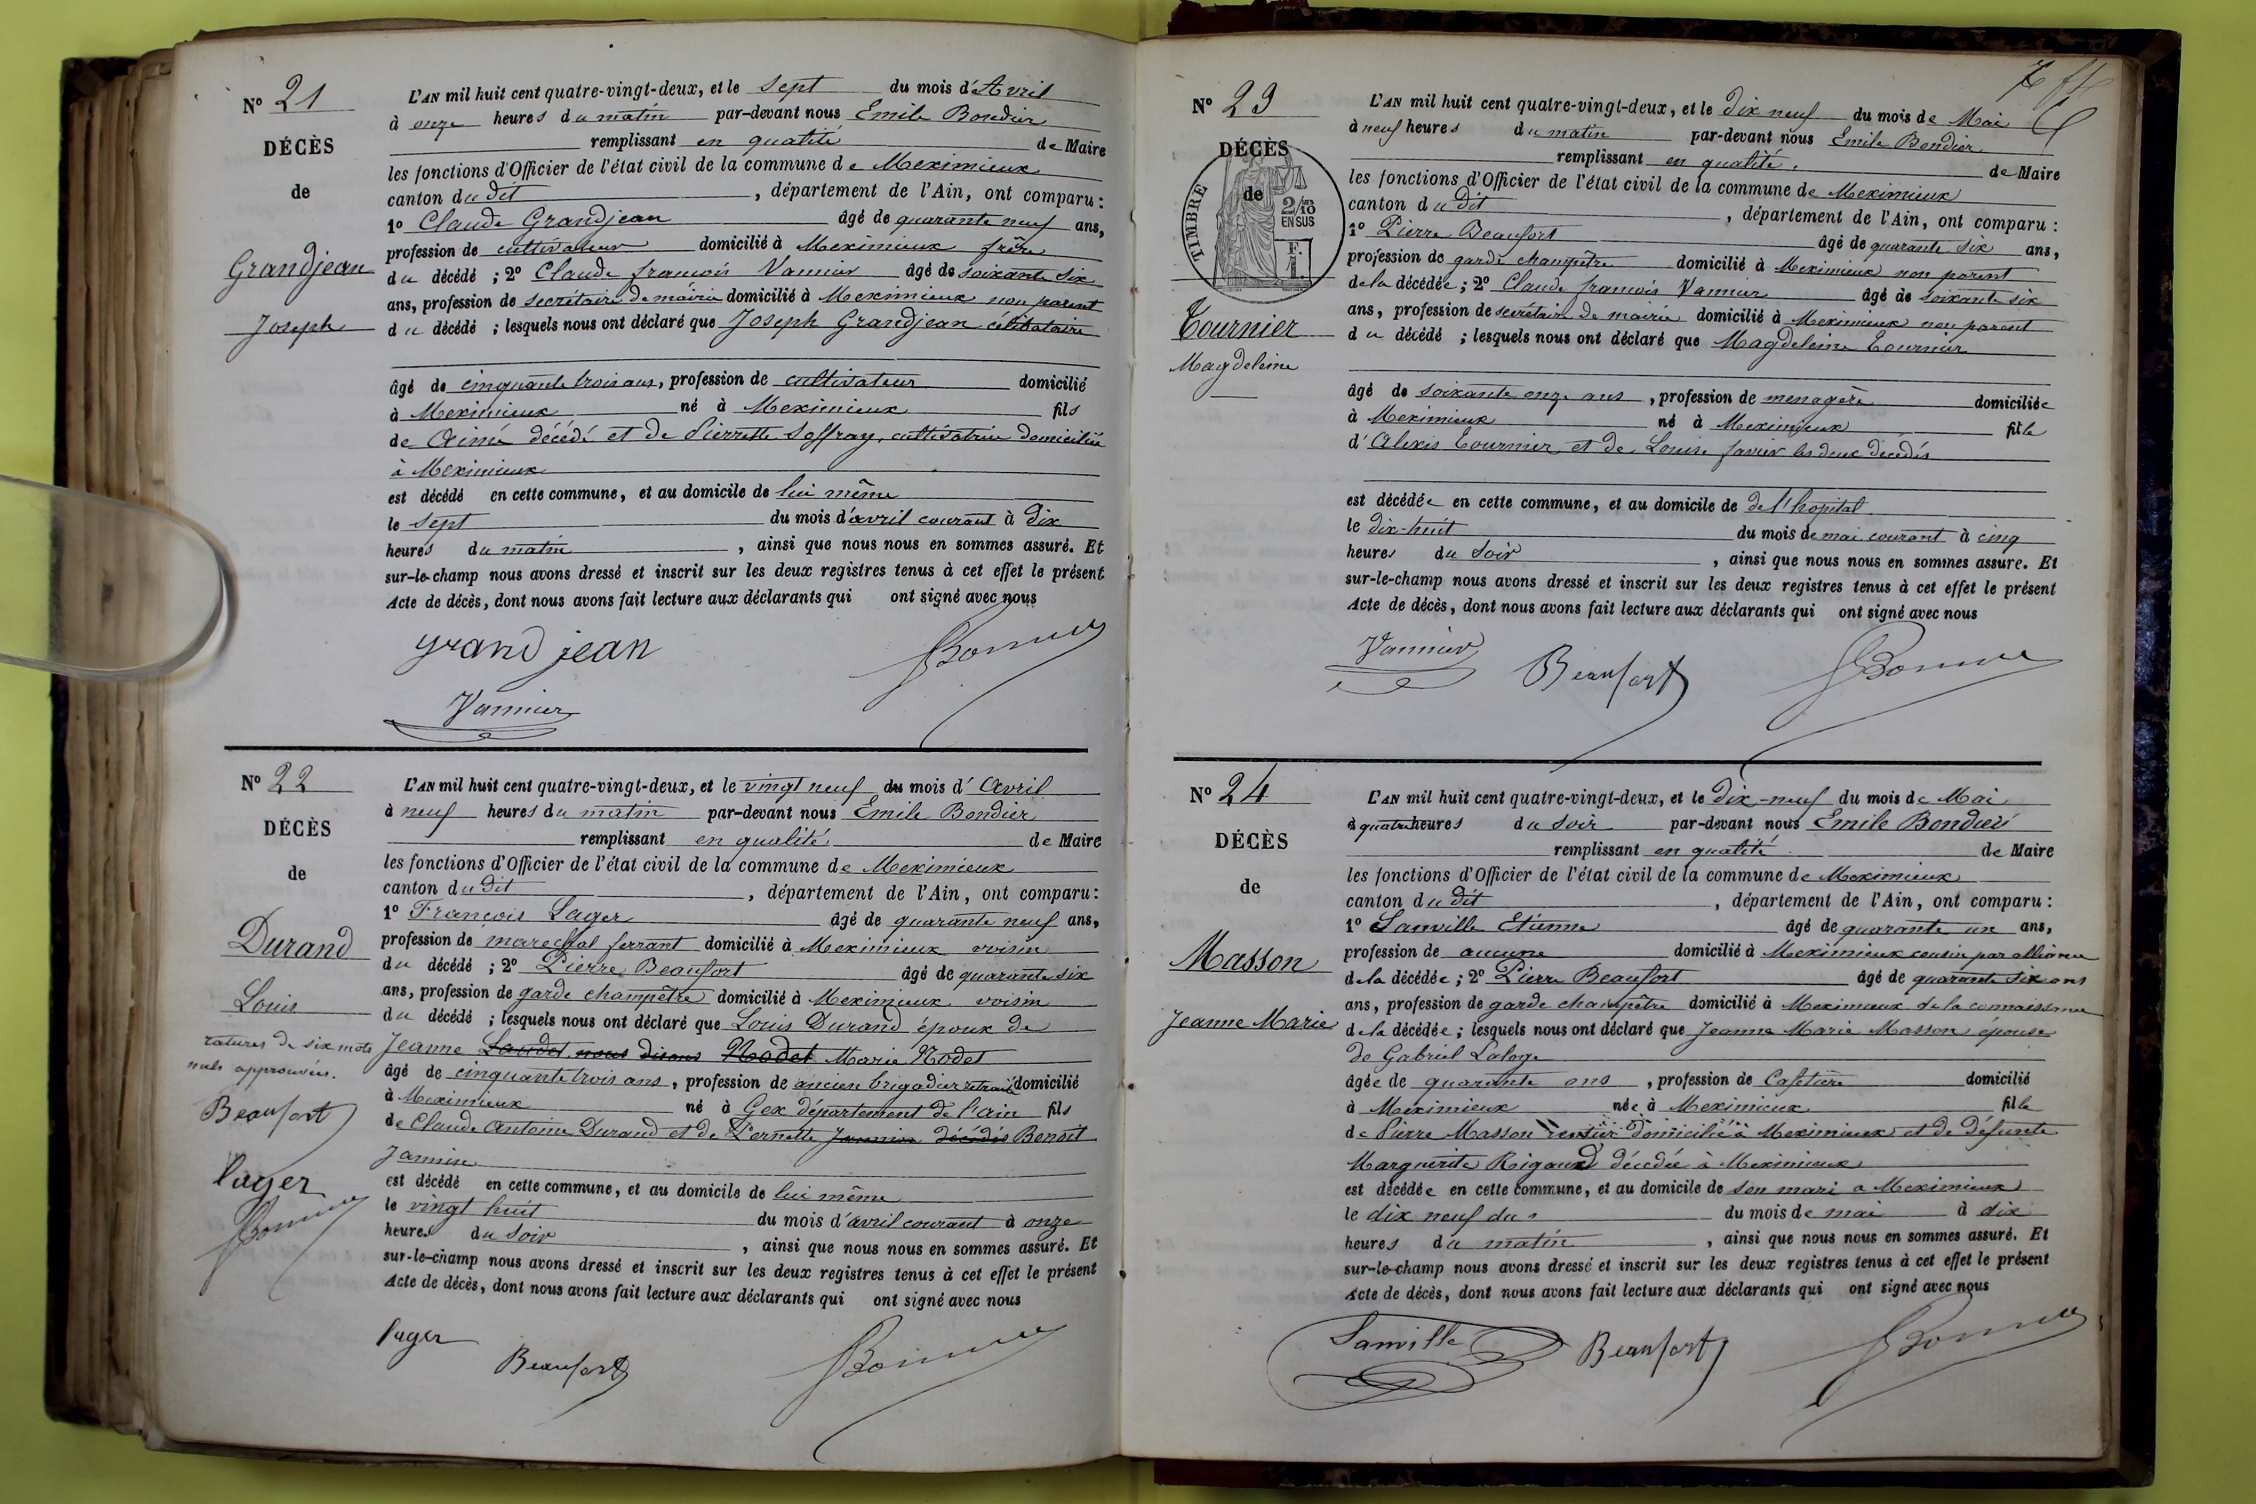 Nº 21
DÉCÈS
de
Grandjean
Joseph
L'AN mil huit cent quatre-vingt-deux, et le sept du mois d'Avril
à onze heures du matin par-devant nous Emile Bondier
remplissant en qualité de Maire
les fonctions d'Officier de l'état civil de la commune de Meximieux
canton du dit , département de l'Ain, ont comparu :
1º Claude Grandjean âgé de quarante neuf ans,
profession de cultivateur domicilié à Meximieux frère
du décédé ; 2º Claude françois Vannier âgé de soixante six
ans, profession de secrétaire de mairie domicilié à Meximieux non parent
du décédé ; lesquels nous ont déclaré que Joseph Grandjean célibataire
âgé de cinquante trois ans, profession de cultivateur domicilié
à Meximieux né à Meximieux fils
de Aimé décédé et de Pierrette Soffray, cultivatrice domiciliée
à Meximieux
est décédé en cette commune, et au domicile de lui même
le sept du mois d'avril courant à dix
heures du matin , ainsi que nous nous en sommes assuré. Et
sur-le-champ nous avons dressé et inscrit sur les deux registres tenus à cet effet le présent
Acte de décès, dont nous avons fait lecture aux déclarants qui ont signé avec nous
grandjean
Vannier
Nº 22
DÉCÈS
de
Durand
Louis
ratures de six mots
nuls approuvées.
Beaufort
Lager
L'AN mil huit cent quatre-vingt-deux, et le vingt neuf du mois d'Avril
à neuf heures du matin par-devant nous Emile Bondier
remplissant en qualité de Maire
les fonctions d'Officier de l'état civil de la commune de Meximieux
canton du dit , département de l'Ain, ont comparu :
1º François Lager âgé de quarante neuf ans,
profession de marechal ferrant domicilié à Meximieux voisin
du décédé ; 2º Pierre Beaufort âgé de quarante six
ans, profession de garde champêtre domicilié à Meximieux voisin
du décédé ; lesquels nous ont déclaré que Louis Durand époux de
Jeanne nous disons Nodet Marie Nodet
âgé de cinquante trois ans, profession de ancien brigadier retraité domicilié
à Meximieux né à Gex département de l'ain fils
de Claude Antoine Durand et de Pernette décédés Benoit
Jannin
est décédé en cette commune, et au domicile de lui même
le vingt huit du mois d'avril courant à onze
heures du soir , ainsi que nous nous en sommes assuré. Et
sur-le-champ nous avons dressé et inscrit sur les deux registres tenus à cet effet le présent
Acte de décès, dont nous avons fait lecture aux déclarants qui ont signé avec nous
Lager
Beaufort
Nº 23
DÉCÈS
de
TIMBRE
2/10
EN SUS
F.
1.
Tournier
Magdeleine
L'AN mil huit cent quatre-vingt-deux, et le dix neuf du mois de Mai
à neuf heures du matin par-devant nous Emile Bondier
remplissant en qualité. de Maire
les fonctions d'Officier de l'état civil de la commune de Meximieux
canton du dit , département de l'Ain, ont comparu :
1º Pierre Beaufort âgé de quarante six ans,
profession de garde champêtre domicilié à Meximieux non parent
de la décédée ; 2º Claude françois Vannier âgé de soixante six
ans, profession de secrétaire de mairie domicilié à Meximieux non parent
du décédé ; lesquels nous ont déclaré que Magdeleine Tournier
âgé de soixante onze ans , profession de menagère domiciliée
à Meximieux né à Meximieux fille
d'Alexis Tournier et de Louise favier les deux décédés
est décédée en cette commune, et au domicile de de l'hopital
le dix-huit du mois de mai courant à cinq
heures du soir , ainsi que nous nous en sommes assuré. Et
sur-le-champ nous avons dressé et inscrit sur les deux registres tenus à cet effet le présent
Acte de décès, dont nous avons fait lecture aux déclarants qui ont signé avec nous
Vannier
Beaufort
Nº 24
DÉCÈS
de
Masson
Jeanne Marie
L'AN mil huit cent quatre-vingt-deux, et le dix-neuf du mois de Mai
à quatre heures du soir par-devant nous Emile Bondier
remplissant en qualité de Maire
les fonctions d'Officier de l'état civil de la commune de Meximieux
canton du dit , département de l'Ain, ont comparu :
1º Lanville Etienne âgé de quarante un ans,
profession de aucune domicilié à Meximieux cousin par alliance
de la décédée ; 2º Pierre Beaufort âgé de quarante six ans
ans, profession de garde champêtre domicilié à Meximieux de la connaissance
de la décédée ; lesquels nous ont déclaré que Jeanne Marie Masson épouse
de Gabriel Laloge
âgée de quarante ans , profession de Cafetière domicilié
à Meximieux née à Meximieux fille
de Pierre Masson rentier domicilié à Meximieux et de défunte
Marguerite Rigaud décédée à Meximieux
est décédée en cette commune, et au domicile de son mari a Meximieux
le dix neuf du du mois de mai à dix
heures du matin , ainsi que nous nous en sommes assuré. Et
sur-le-champ nous avons dressé et inscrit sur les deux registres tenus à cet effet le présent
Acte de décès, dont nous avons fait lecture aux déclarants qui ont signé avec nous
Lanville
Beaufort